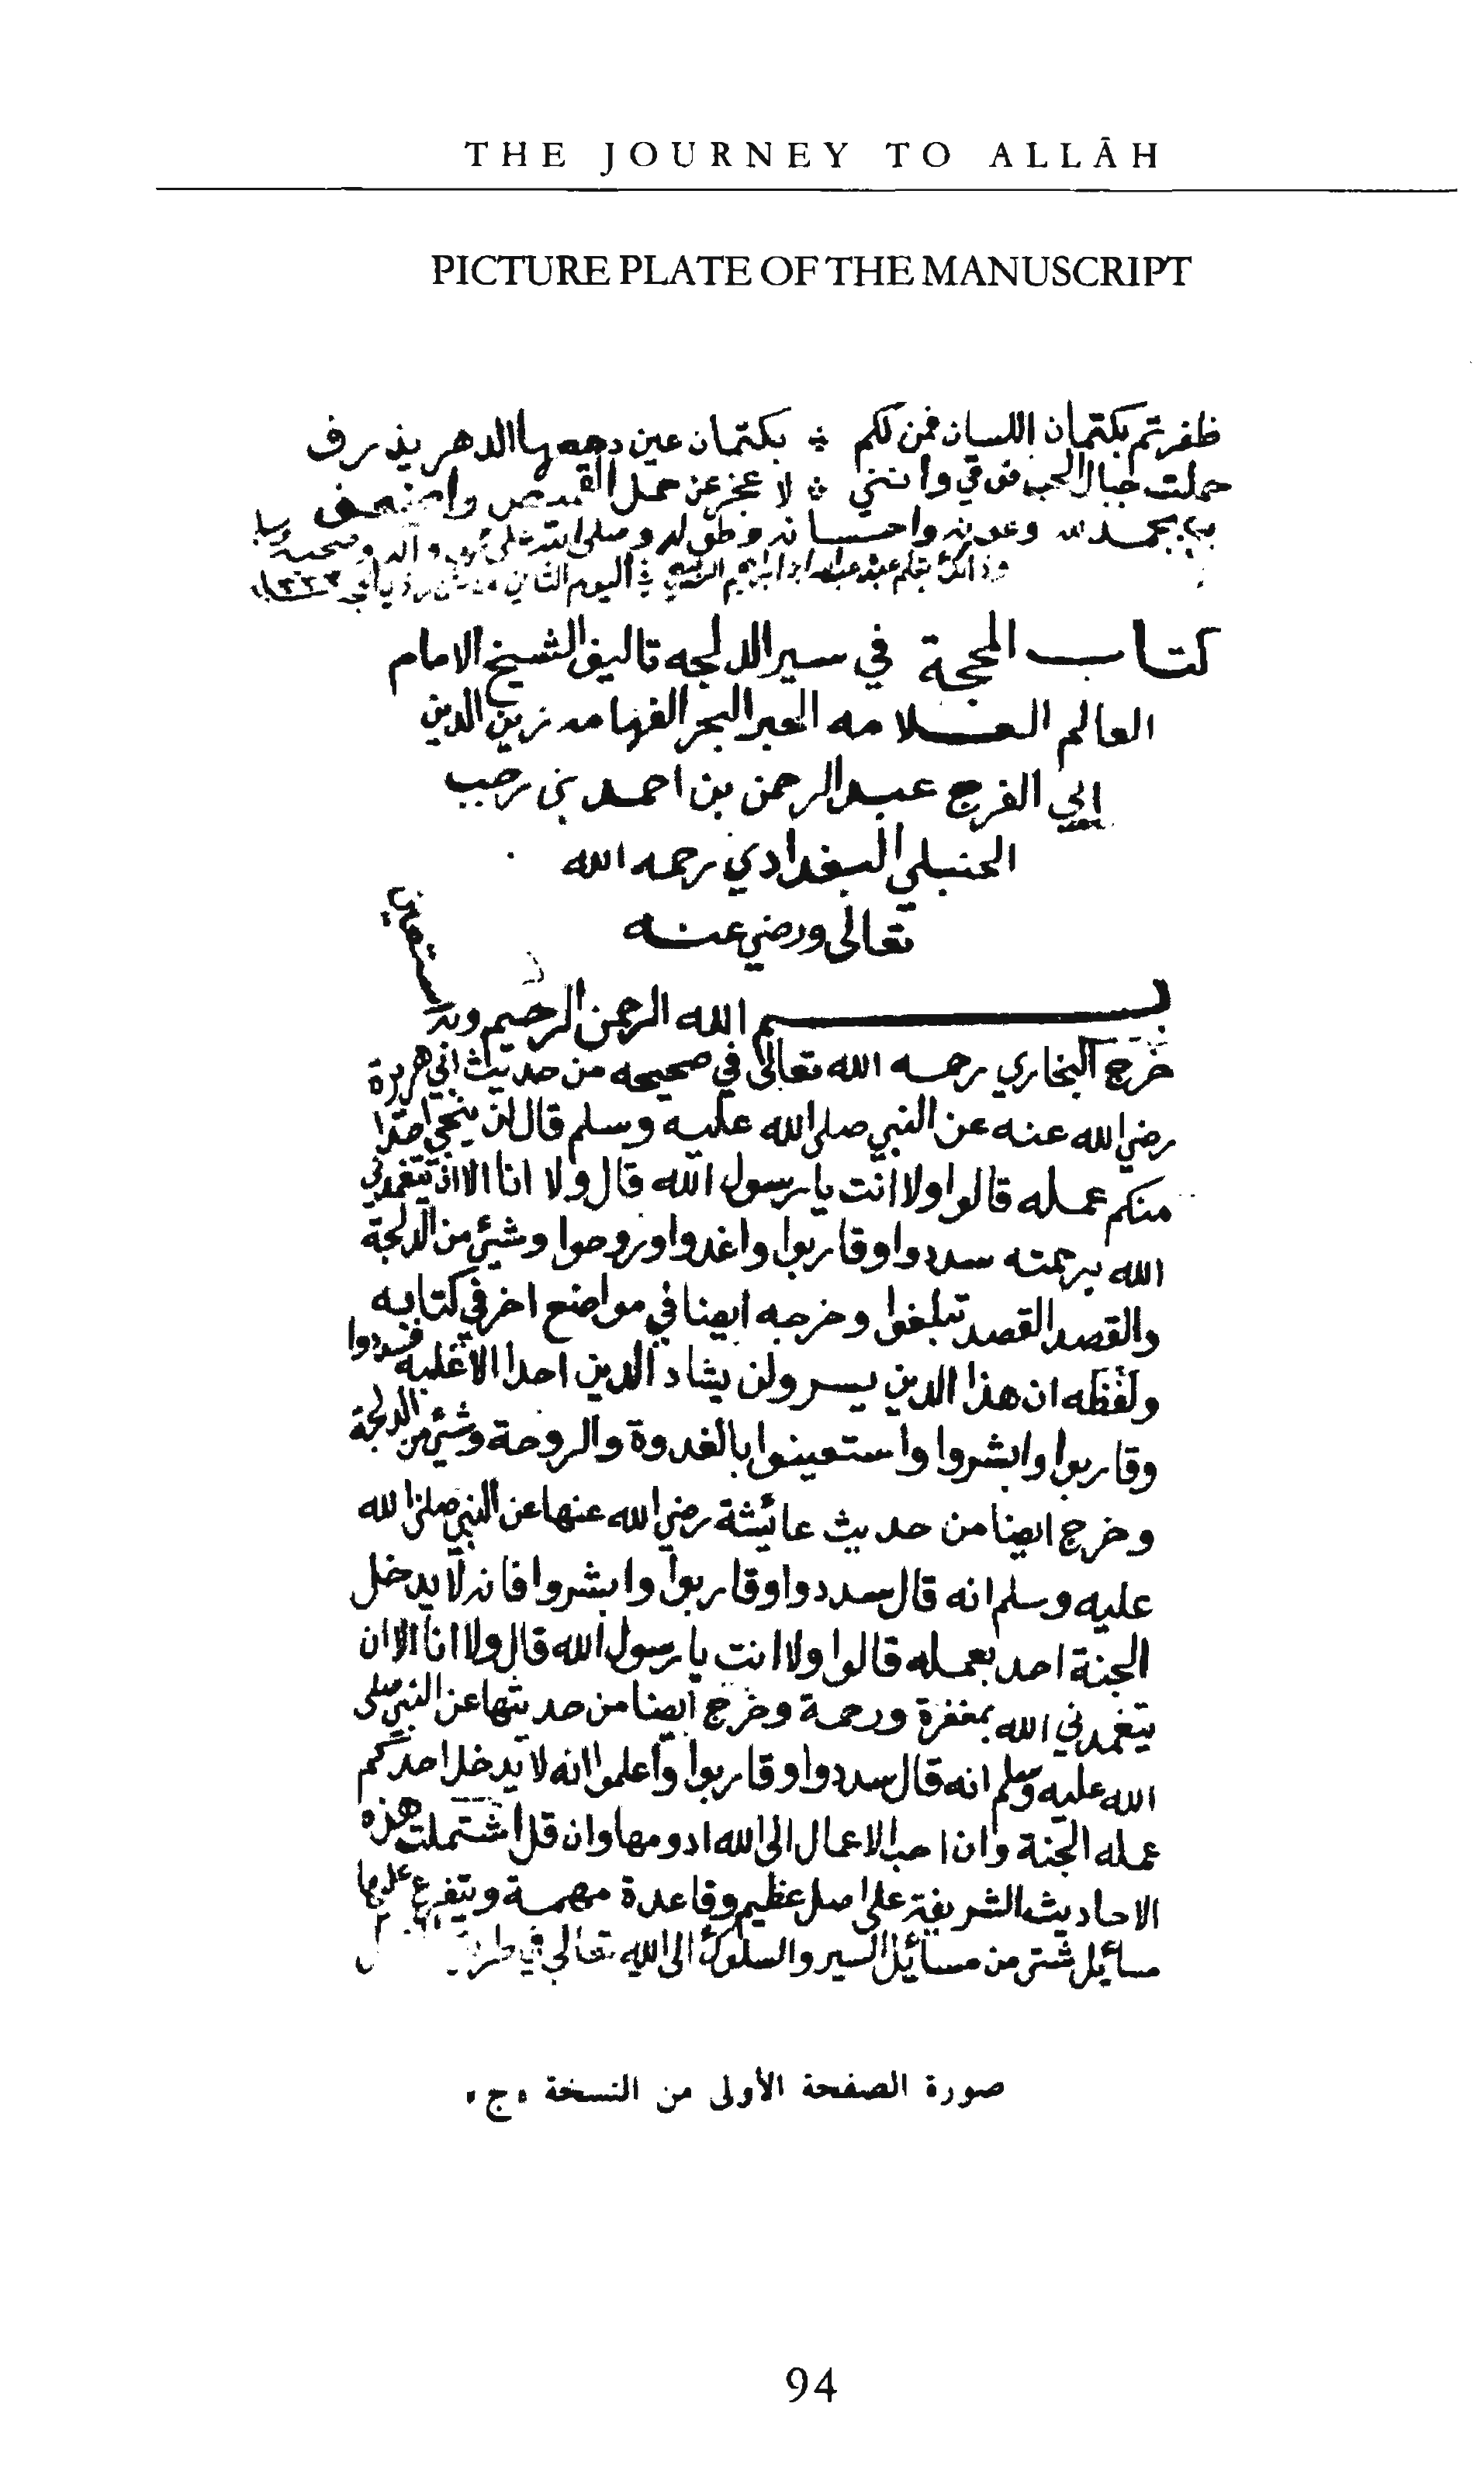 THE JOURNEY TO ALLĀH
PICTURE PLATE OF THE MANUSCRIPT
ظفرتم بكتمان اللسان فمن لكم ❖ بكتمان عين دمعها الدهر يذرف
حملت جبال الحب فوقي وانني ❖ لا عجز عن حمل القميص واضعف
بحمد الله وعونه واحسانه
وذلك بقلم
كتاب المحجة في سير الدلجه تاليف الشيخ الامام
العالم العلامه الحبر البحر الفهامه زين الدين
ابي الفرج عبد الرحمن بن احمد بن رجب
الحنبلي البغدادي رحمه الله
تعالى ورضي عنه
بسم الله الرحمن الرحيم وبه نستعين
خرج البخاري رحمه الله تعالى في صحيحه من حديث ابي هريرة
رضي الله عنه عن النبي صلى الله عليه وسلم قال لن ينجي احدا
منكم عمله قالوا ولا انت يا رسول الله قال ولا انا الا ان يتغمدني
الله برحمته سددوا وقاربوا واغدوا وروحوا وشئ من الدلجة
والقصد القصد تبلغوا وخرجه ايضا في مواضع اخر في كتابه
ولفظه ان هذا الدين يسر ولن يشاد الدين احدا الا غلبه فسددوا
وقاربوا وابشروا واستعينوا بالغدوة والروحة وشئ من الدلجة
وخرج ايضا من حديث عائيشة رضي الله عنها عن النبي صلى الله
عليه وسلم انه قال سددوا وقاربوا وابشروا فانه لا يدخل
الجنة احد بعمله قالوا ولا انت يا رسول الله قال ولا انا الا ان
يتغمدني الله بمغفرة ورحمة وخرج ايضا من حديثها عن النبي صلى
الله عليه وسلم انه قال سددوا وقاربوا واعلموا انه لا يدخل احدكم
عمله الجنة وان احب الاعمال الى الله ادومها وان قل اشتملت هذه
الاحاديث الشريفة على اصل عظيم وقاعدة مهمة ويتفرع عليها
مسائل شتى من مسائل السير والسلوك الى الله تعالى في
صورة الصفحة الأولى من النسخة «ج»
94